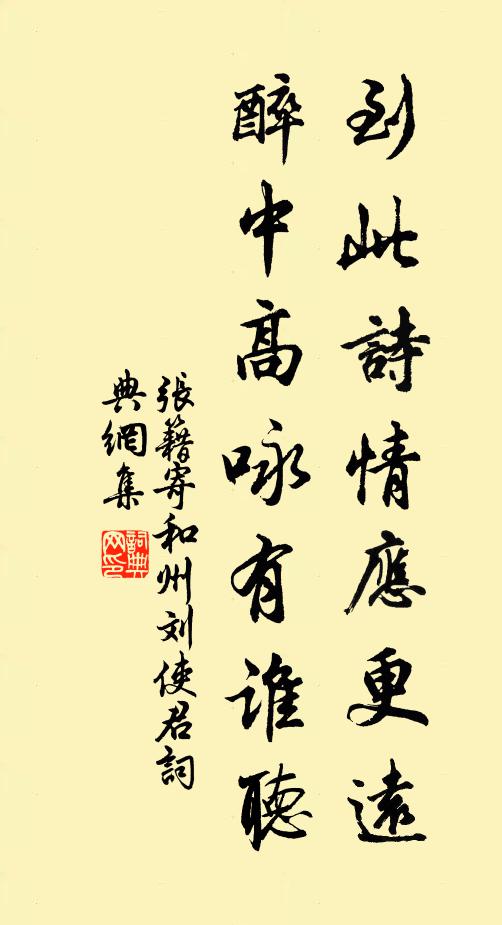 到此詩情應更遠
醉中高咏有谁聽
張籍寄和州刘使君詞
典網集
詞典
网印